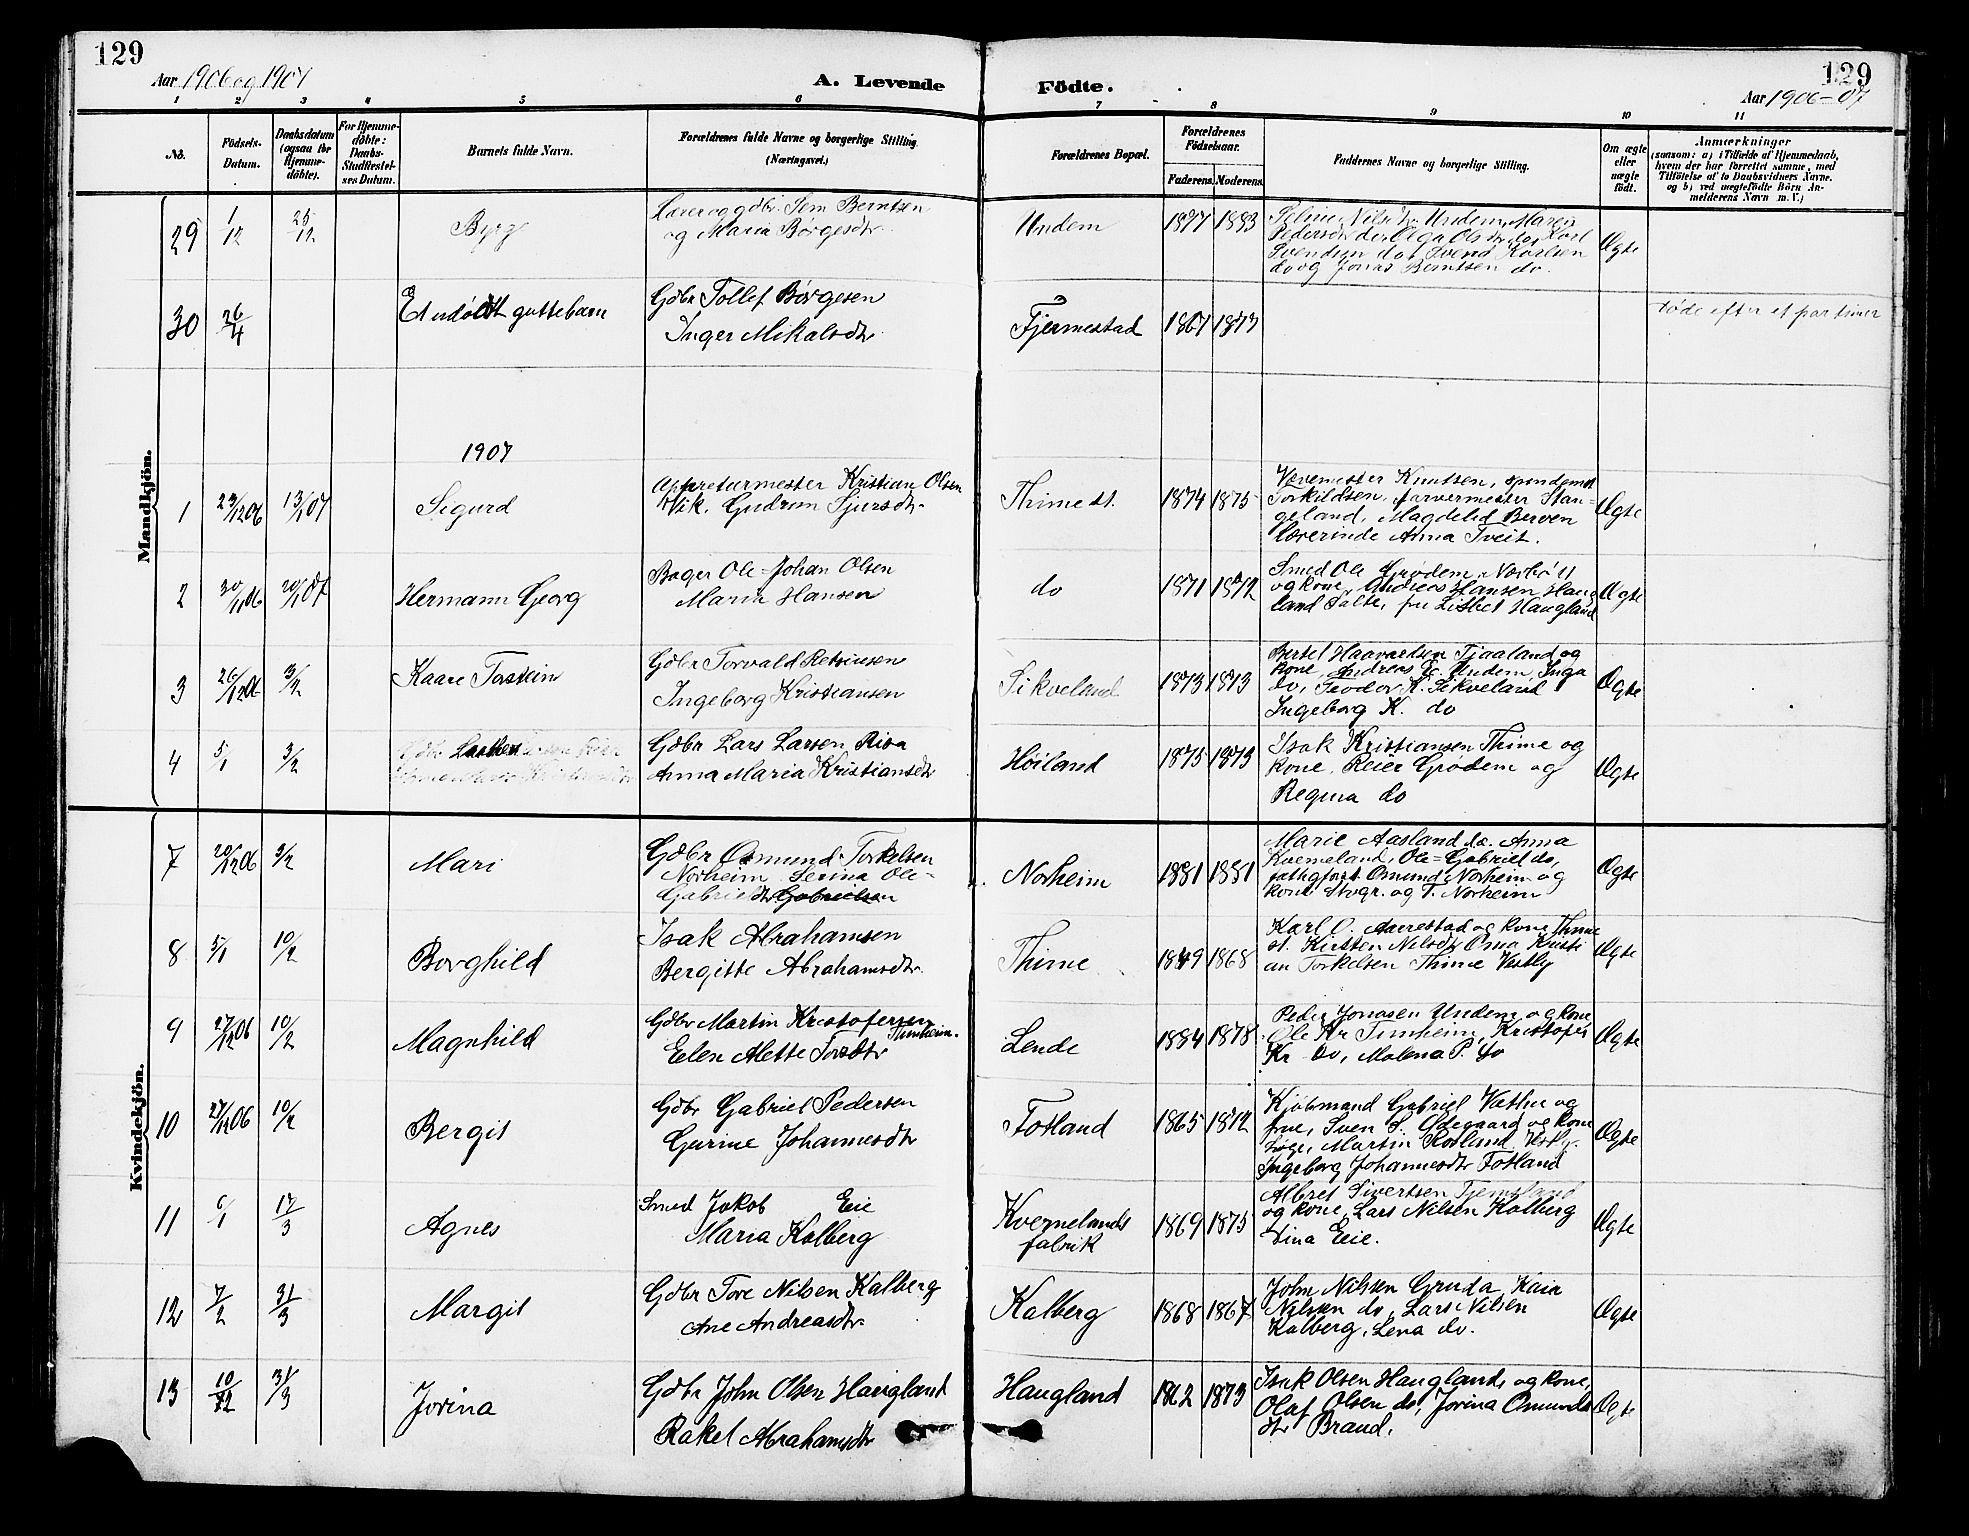 129
129
Aar 1906 og 1907
A. Levende
Födte.
Aar 1906-07
1 2 3 4 5 6 7 8 9 10 11
No.
Födsels-
Datum.
Daabsdatum
(ogsaa for
Hjemme-
döbte).
For Hjemme-
döbte:
Daabs-
Stadfæstel-
ses Datum.
Barnets fulde Navn.
Forældrenes fulde Navne og borgerlige Stilling.
(Næringsvei.)
Forældrenes Bopæl.
Forældrenes
Födselsaar.
Faderens. Moderens.
Faddernes Navne og borgerlige Stilling.
Om ægte
eller
uægte
födt.
Anmærkninger
(saasom: a) i Tilfælde af Hjemmedaab,
hvem der har forrettet samme, med
Tilföielse af to Daabsvidners Navne,
og b) ved uægtefödte Börn An-
melderens Navn m. V.)
Mandkjön.
29 1/12 25/12
Lærer og gdbr. Sem Berntsen
og Maria Børgesdtr.
Undem
1883
Undem, Maren
Pedersdtr do, Olga Olsdtr do, Karl
Svendsen do, Svend Karlsen
do og Jonas Berntsen do.
Ægte
30 26/4
Et udøbt guttebarn
Gdbr Tollef Børgesen
Inger Mikalsdtr
Tjermestad
1867 1873
døde efter et par timer
1907
1 29/12 06 13/1 07
Sigurd
Appreturmester Kristian Olsen
Vik. Gudrun Sjursdtr.
Thime st.
1874 1875
Vævemester Knutsen, spindem
Torkildsen, farvermester Stan-
geland, Magdelid Berven
lærerinde Anna Tveit.
Ægte
2 30/11 06 20/1 07
Hermann Georg
Bager Ole Johan Olsen
Maria Hansen
do
1871 1872
Smed Ole Grødem, Nærbø
og kone, Andreas Hansen Haug
land Salte, fru Lisbet Haugland
Ægte
3 26/12 06 3/2
Kaare Torstein
Gdbr Torvald Retsiusen
Ingeborg Kristiansen
Sikveland
1873 1873
Bertel Haavardsen Tjaaland og
kone, Andreas G. Undem, Inga
do, Teodor K. Sikveland
Ingeborg K. do
Ægte
4 5/1 3/2
Gdbr Lars Larsen Risa
Anna Maria Kristiansdtr
Høiland
1875 1873
Isak Kristiansen Thime og
kone, Reier Grødem og
Regina do
Ægte
Kvindekjön.
7 20/12 06 3/2
Mari
Gdbr Osmund Torkelsen
Norheim Serina Ole-
Gabrielsdtr Gabrielsen
Norheim
1881 1881
Marie Aasland do. Anna
Kverneland, Ole-Gabriel do,
fattigforst. Osmund Norheim og
kone Stvgr. og T. Norheim
Ægte
8 5/1 10/2
Borghild
Isak Abrahamsen
Bergitte Abrahamsdtr.
Thime
1849 1868
Karl O. Aarrestad og kone Thime
st. Kirsten Nilsdtr Oma Kristi
an Torkelsen Thime Vestly
Ægte
9 27/12 06 10/2
Magnhild
Gdbr Martin Kristofersen
Tunheim.
Elen Alette Torsdtr
Lende
1884 1878
Peder Jonasen Undem og kone
Ole Kr Tunheim, Kristofer
Kr do, Malena P. do
Ægte
10 27/12 06 10/2
Bergit
Gdbr Gabriel Pedersen
Gurine Johannesdtr
Fotland
1865 1872
Kjøbmand Gabriel Vathne og
frue, Sven S. Ødegaard og kone
Søge, Martin Rosland Vestly
Ingeborg Johannesdtr Fotland
Ægte
11 6/1 17/3
Agnes
Smed Jakob Eie
Maria Kalberg
Kvernelands
fabrik
1869 1875
Albret Sivertsen Tjemsland
og kone, Lars Nilsen Kalberg
Lina Eie.
Ægte
12 7/2 31/3
Margit
Gdbr Tore Nilsen Kalberg
Ane Andreasdtr.
Kalberg
1868 1867
John Nilssen Gruda, Kaia
Nilssen do, Lars Nilsen
Kalberg, Lena do.
Ægte
13 10/12 31/3
Jorina
Gdbr John Olsen Haugland
Rakel Abrahamsdtr
Haugland
1862 1873
Isak Olsen Haugland og kone,
Olaf Olsen do, Jorina Osmunds
dtr Braud.
Ægte